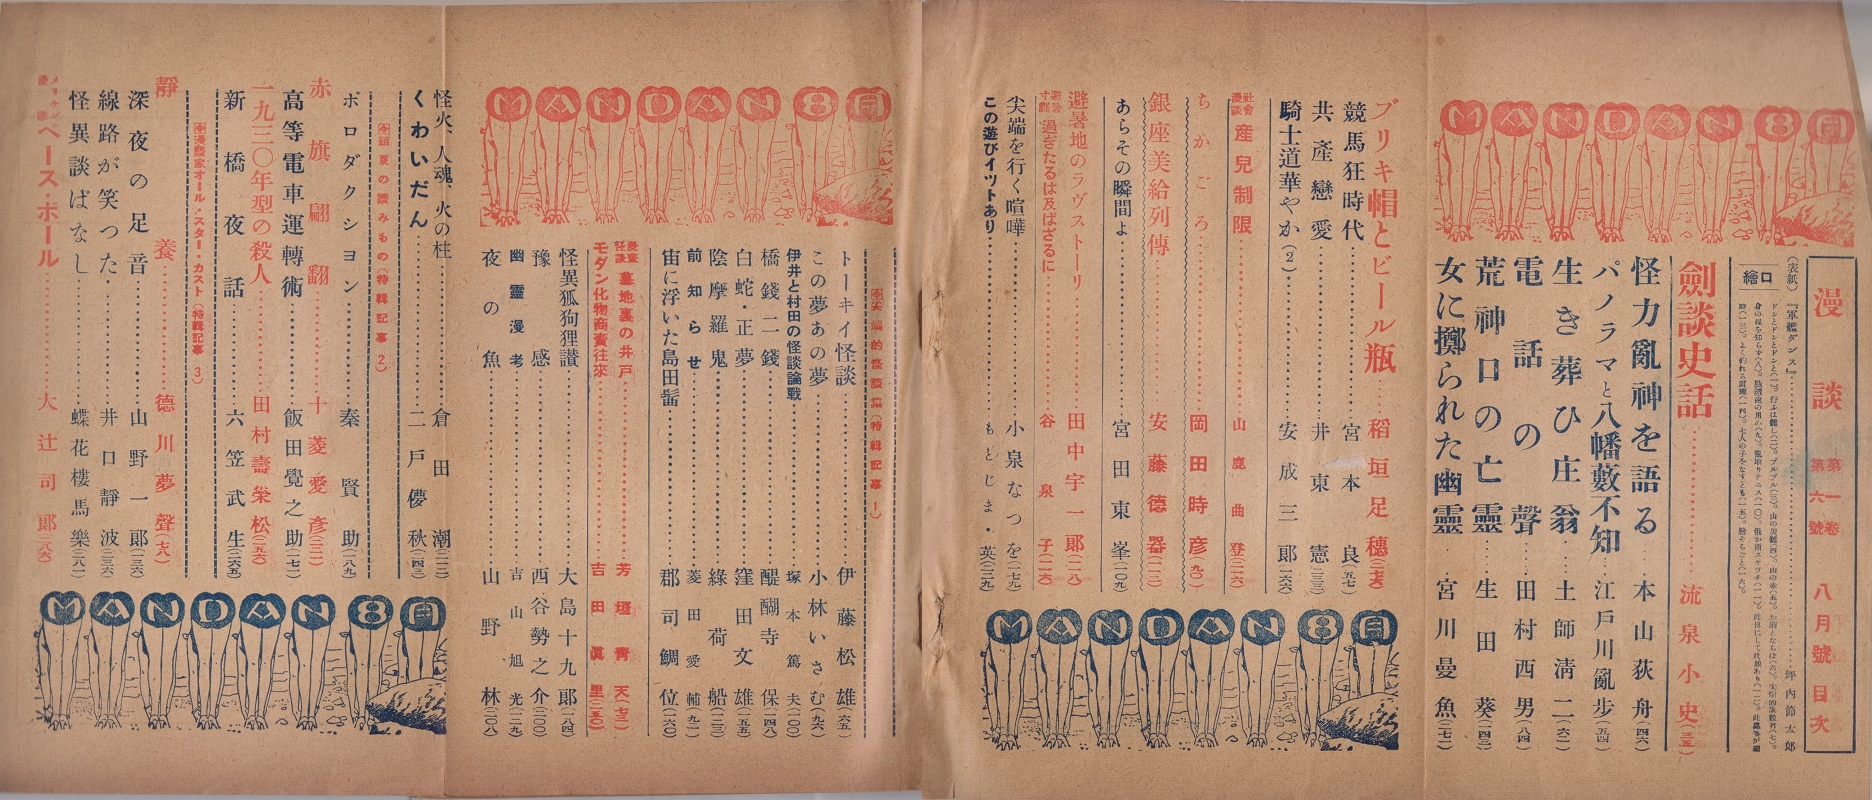 漫談 第一卷 第六號 八月號 目次
(表紙)『軍艦ダンス』 坪內節太郎
口繪
MANDAN 8月
劍談史話 流泉小史(三五)
怪力亂神を語る 本山荻舟(四六)
パノラマと八幡藪不知 江戶川亂步(五四)
生き葬ひ庄翁 土師淸二(六二)
電話の聲 田村西男(八四)
荒神口の亡靈 生田葵(四三)
女に擲られた幽靈 宮川曼魚(七二)
ブリキ帽とビール瓶 稻垣足穗
競馬狂時代 宮本良(五七)
共產戀愛 井東憲(三三)
騎士道華やか(2) 安成三郎(二六六)
社會漫談 產兒制限 山鹿曲登(二二六)
ちかごろ 岡田時彥(九〇)
銀座美給列傳 安藤德器(二二三)
あらその瞬間よ 宮田東峯(一〇九)
避暑地のラヴストーリ 田中宇一郎(二二八)
避暑寸劇 過ぎたるは及ばざるに 谷泉子(二二六)
尖端を行く喧嘩 小泉なつを(二七九)
この遊びイツトあり もとじま・英(三二九)
MANDAN 8月
尖端的怪談篇(特輯記事 1)
トーキイ怪談 伊藤松雄(六五)
この夢あの夢 小林いさむ(九六)
伊井と村田の怪談論戰 塚本篤夫(一〇〇)
橋錢二錢 醍醐寺保(一四八)
白蛇・正夢 窪田文雄(一五五)
陰摩羅鬼 綠荷船(二三三)
前知らせ 菱田愛輔(九二)
宙に浮いた島田髷 郡司鯛位(一六〇)
漫查怪談 墓地裏の井戶 芳垣靑天(七三)
モダン化物商賣往來 吉田眞里(一五〇)
怪異狐狗狸讃 大島十九郎(一八四)
豫感 西谷勢之介(二〇〇)
幽靈漫考 吉山旭光(二二九)
夜の魚 山野林(二〇八)
MANDAN 8月
怪火、人魂、火の柱 倉田潮(二二二)
くわいだん 二戶儚秋(二四三)
頭夏の讀みもの(特輯記事 2)
ボロダクシヨン 秦賢助(二八九)
高等電車運轉術 飯田覺之助(一七二)
赤旗翩翻 十菱愛彥(三二)
一九三〇年型の殺人 田村壽榮松(二五六)
新橋夜話 六笠武生(二六五)
漫談家オール・スター・カスト(特輯記事 3)
靜養 德川夢聲(一六八)
深夜の足音 山野一郎(二三六)
線路が笑つた 井口靜波(二三六)
怪異談ばなし 蝶花樓馬樂(二八一)
メリケン漫談 ベース・ボール 大辻司郎(二八六)
MANDAN 8月